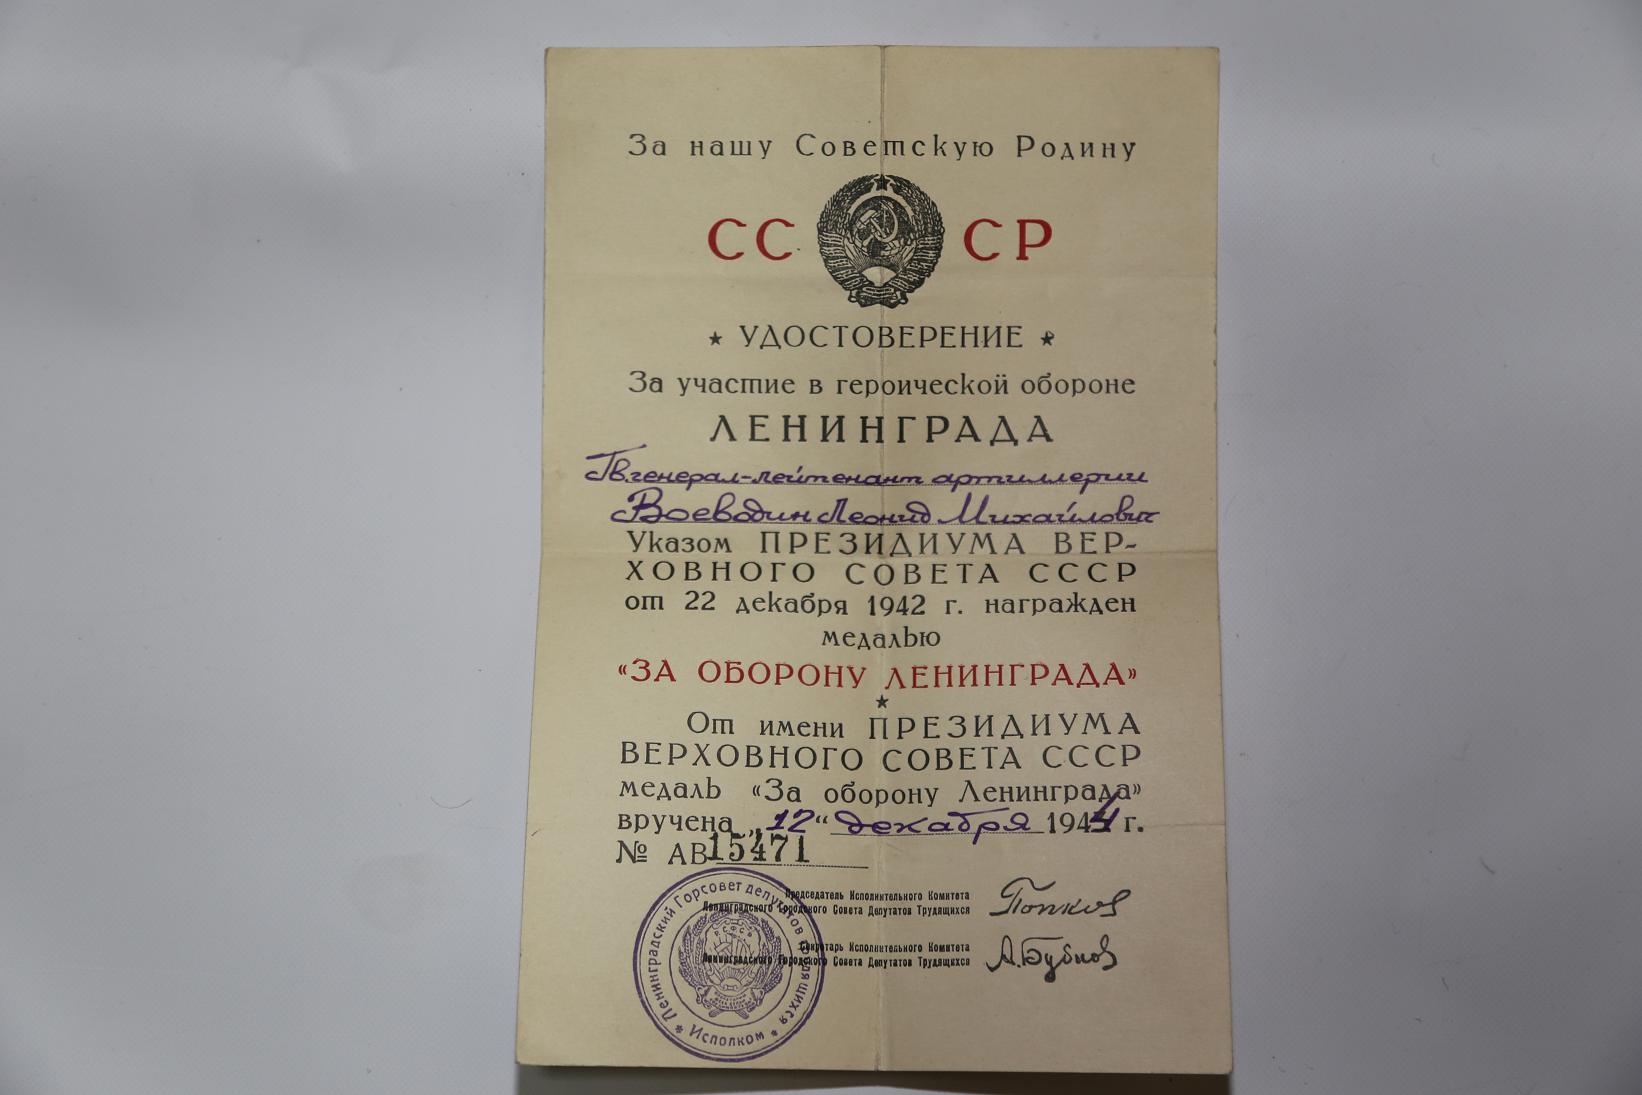 За нашу Советскую Родину
СССР
★ УДОСТОВЕРЕНИЕ ★
За участие в героической обороне
ЛЕНИНГРАДА
Гв.генерал-лейтенант артиллерии
Воеводин Леонид Михайлович
Указом ПРЕЗИДИУМА ВЕР-
ХОВНОГО СОВЕТА СССР
от 22 декабря 1942 г. награжден
медалью
«ЗА ОБОРОНУ ЛЕНИНГРАДА»
★
От имени ПРЕЗИДИУМА
ВЕРХОВНОГО СОВЕТА СССР
медаль «За оборону Ленинграда»
вручена „12“ декабря 1944 г.
№ АВ 15471
Председатель Исполнительного Комитета
Ленинградского Городского Совета Депутатов Трудящихся
Попков
Секретарь Исполнительного Комитета
Ленинградского Городского Совета Депутатов Трудящихся
А.Бубнов
Ленинградский Горсовет депутатов трудящихся
* Исполком *
Р.С.Ф.С.Р.